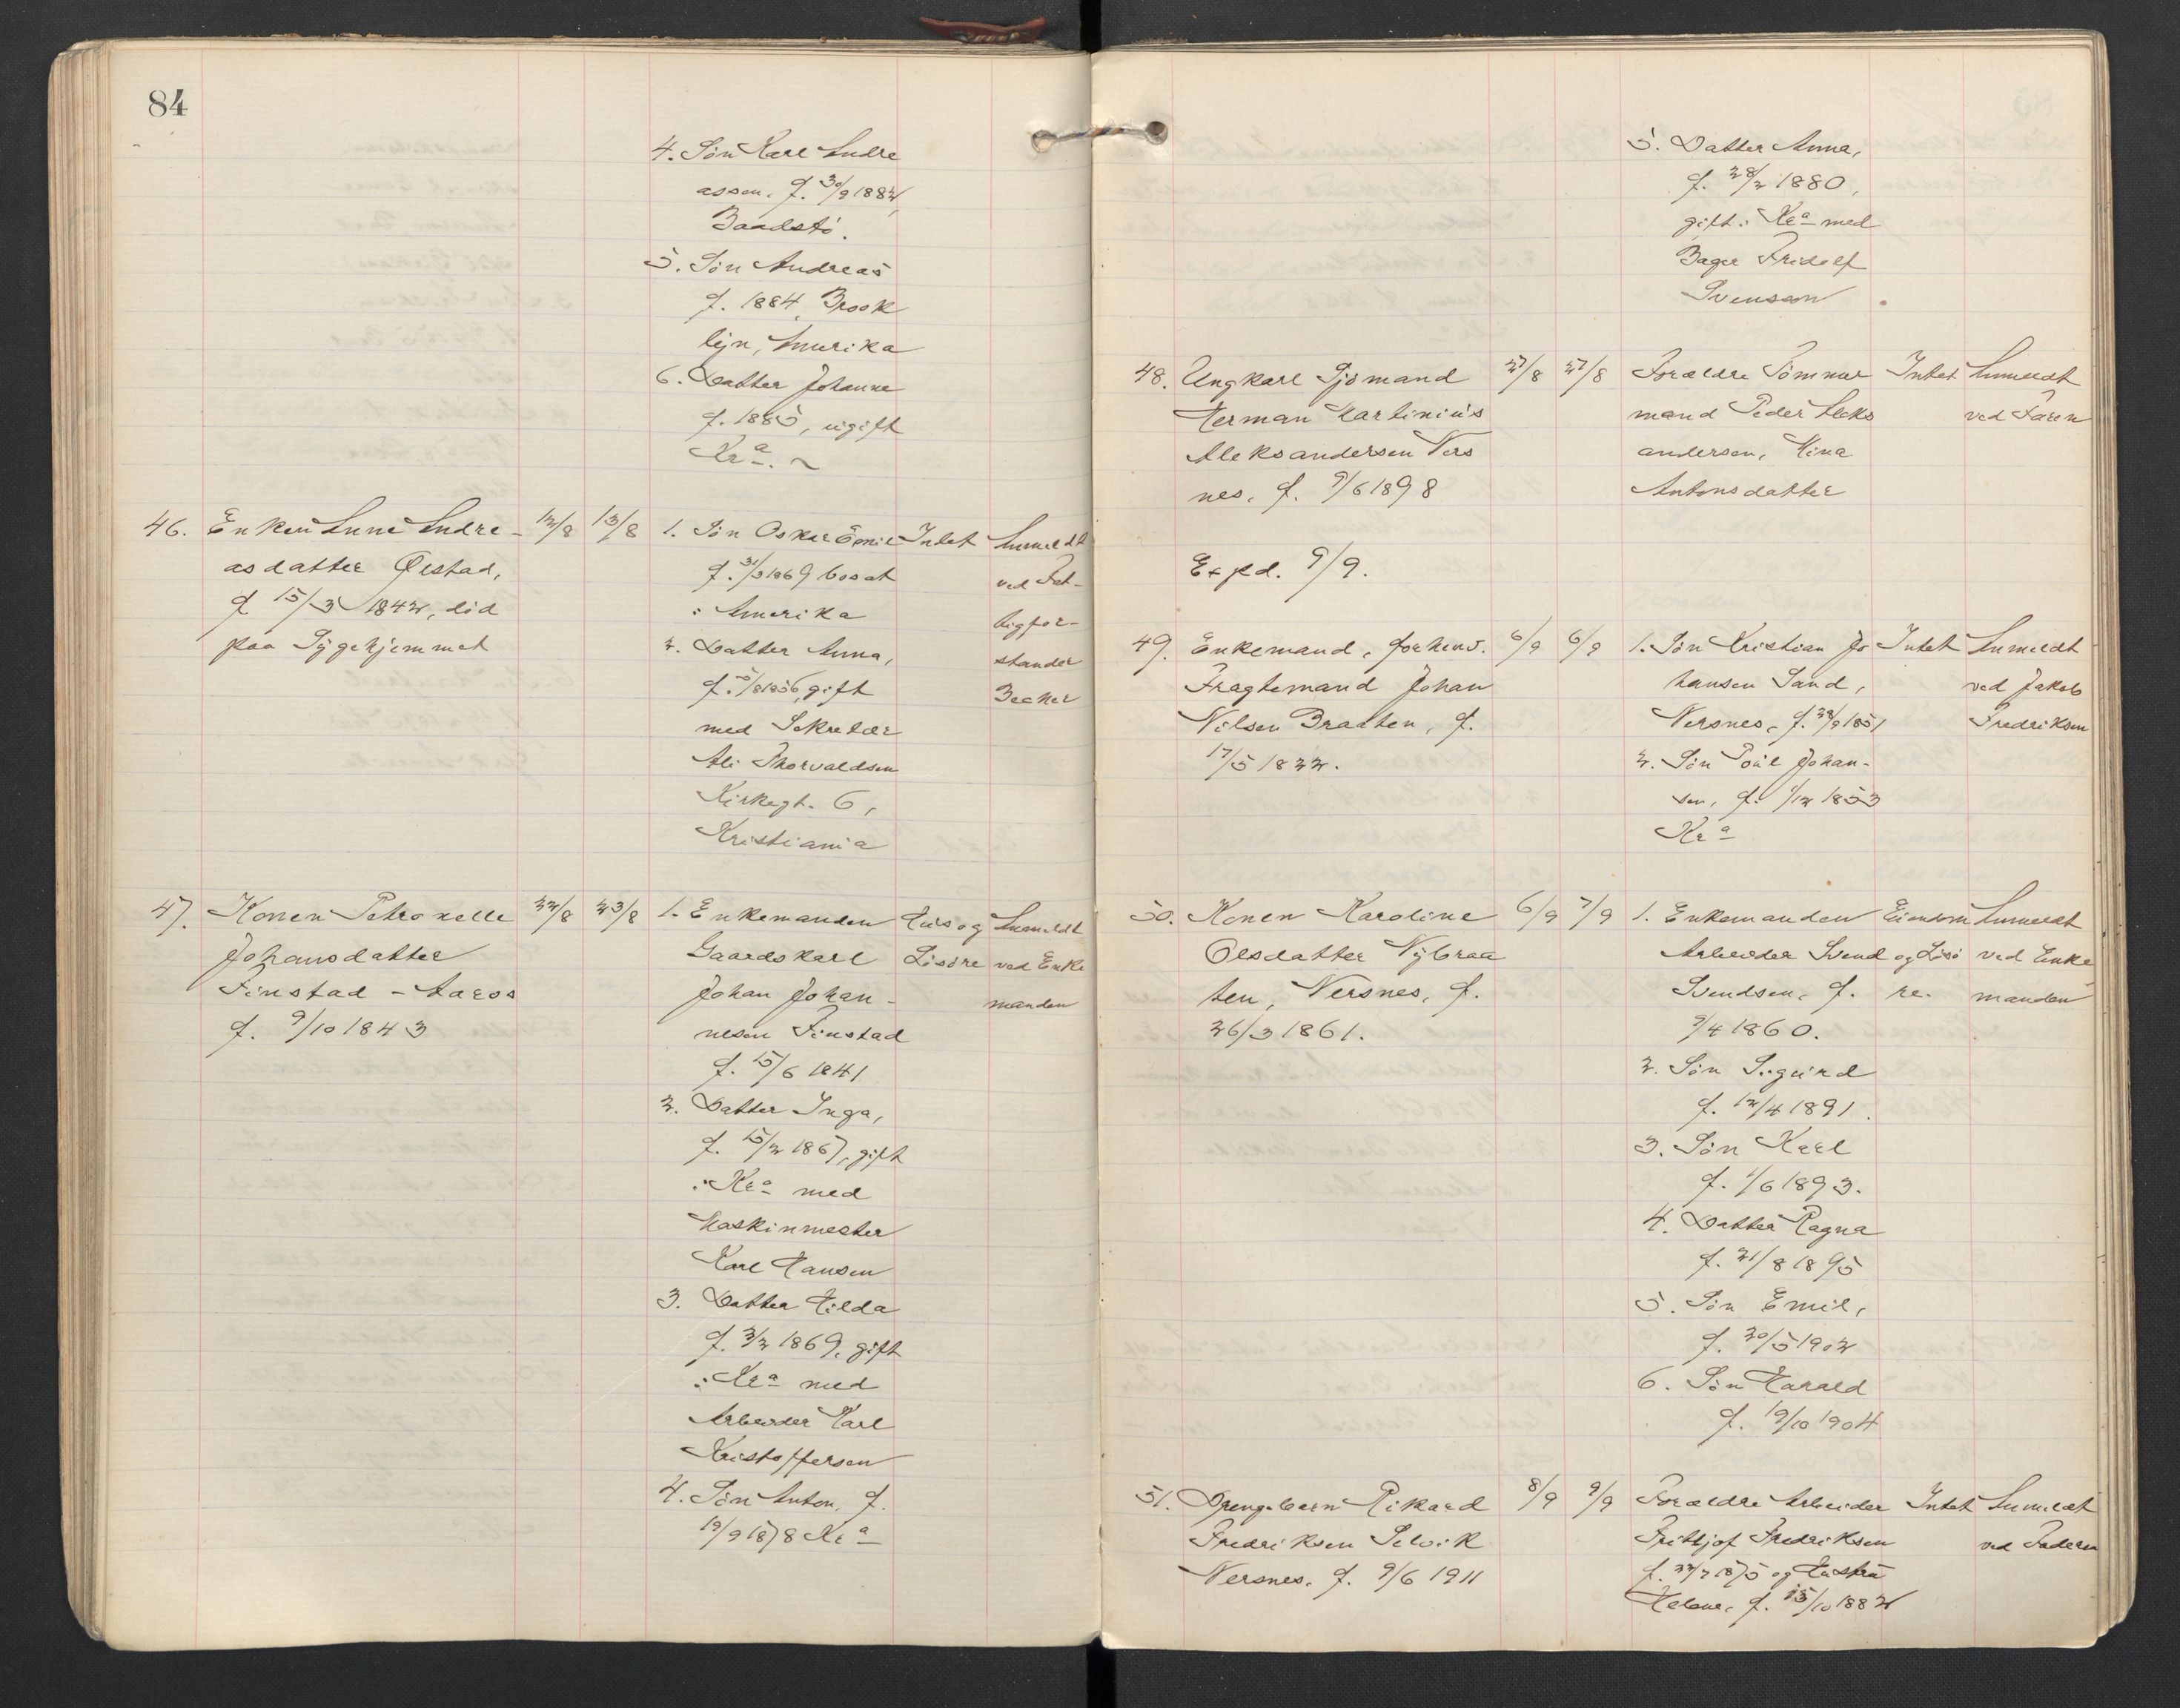 84
4. Søn Karl Andre
assen. f. 30/9 1882,
Baadstø.
5. Søn Andreas
f. 1884, Brook
lyn, Amerika
6. Datter Johanne
f. 1885, ugift
Kra.
46. Enken Anne Andre- 12/8 13/8 1. Søn Oskar Emil Intet Anmeldt
asdatter Ørstad, f. 31/3 1869 bosat ved Fat-
f 15/3 1842, død i Amerika tigfor-
paa Sygehjemmet 2. Datter Anna, stander
f. 5/8 1856, gift Becker
med Sekretær
Ali Thorvaldsen
Kirkegt. 6,
Kristiania
47. Konen Petronelle 22/8 23/8 1. Enkemanden Hus og Anmeldt
Johansdatter Gaardskarl Løsøre ved Enke
Finstad - Aaros Johan Johan- manden
f. 9/10 1843 nesen Finstad
f. 15/6 1841
2. Datter Inga,
f. 15/2 1867, gift
i Kra med
Maskinmester
Karl Hansen
3. Datter Hilda
f. 3/2 1869, gift
i Kra med
Arbeider Karl
Kristoffersen
4. Søn Anton, f.
19/9 1878 Kra
5. Datter Anna,
f. 28/2 1880,
gift i Kra med
Bager Fridolf
Svensson
48. Ungkarl Sjømand 27/8 27/8 Forældre Tømmer Intet Anmeldt
Herman Martinius mand Peder Aleks ved Faren
Aleksandersen Ners andersen, Mina
nes, f. 9/6 1898 Antonsdatter
Expd. 9/9.
49. Enkemand, forhenv. 6/9 6/9 1. Søn Kristian Jo Intet Anmeldt
Fragtemand Johan hansen Sand, ved Jakob
Nilsen Braaten, f. Nersnes, f. 28/9 1851 Fredriksen
17/5 1822. 2. Søn Poul Johan-
sen, f. 1/12 1853
Kra
50. Konen Karoline 6/9 7/9 1. Enkemanden Eiendom Anmeldt
Olsdatter Nybraa Arbeider Svend og Løsø ved Enke
ten, Nersnes, f. Svendsen, f. re. manden
26/3 1861. 9/4 1860.
2. Søn Sigurd
f. 12/4 1891.
3. Søn Karl
f. 1/6 1893.
4. Datter Ragna
f. 21/8 1895
5. Søn Emil,
f. 20/5 1902
6. Søn Harald
f. 19/10 1904
51. Drengebarn Rikard 8/9 9/9 Forældre Arbeider Intet Anmeldt
Fredriksen Selvik Frithjof Fredriksen ved Faderen
Nersnes. f. 9/6 1911 f. 22/7 1875 og Hustru
Helene, f. 15/10 1882